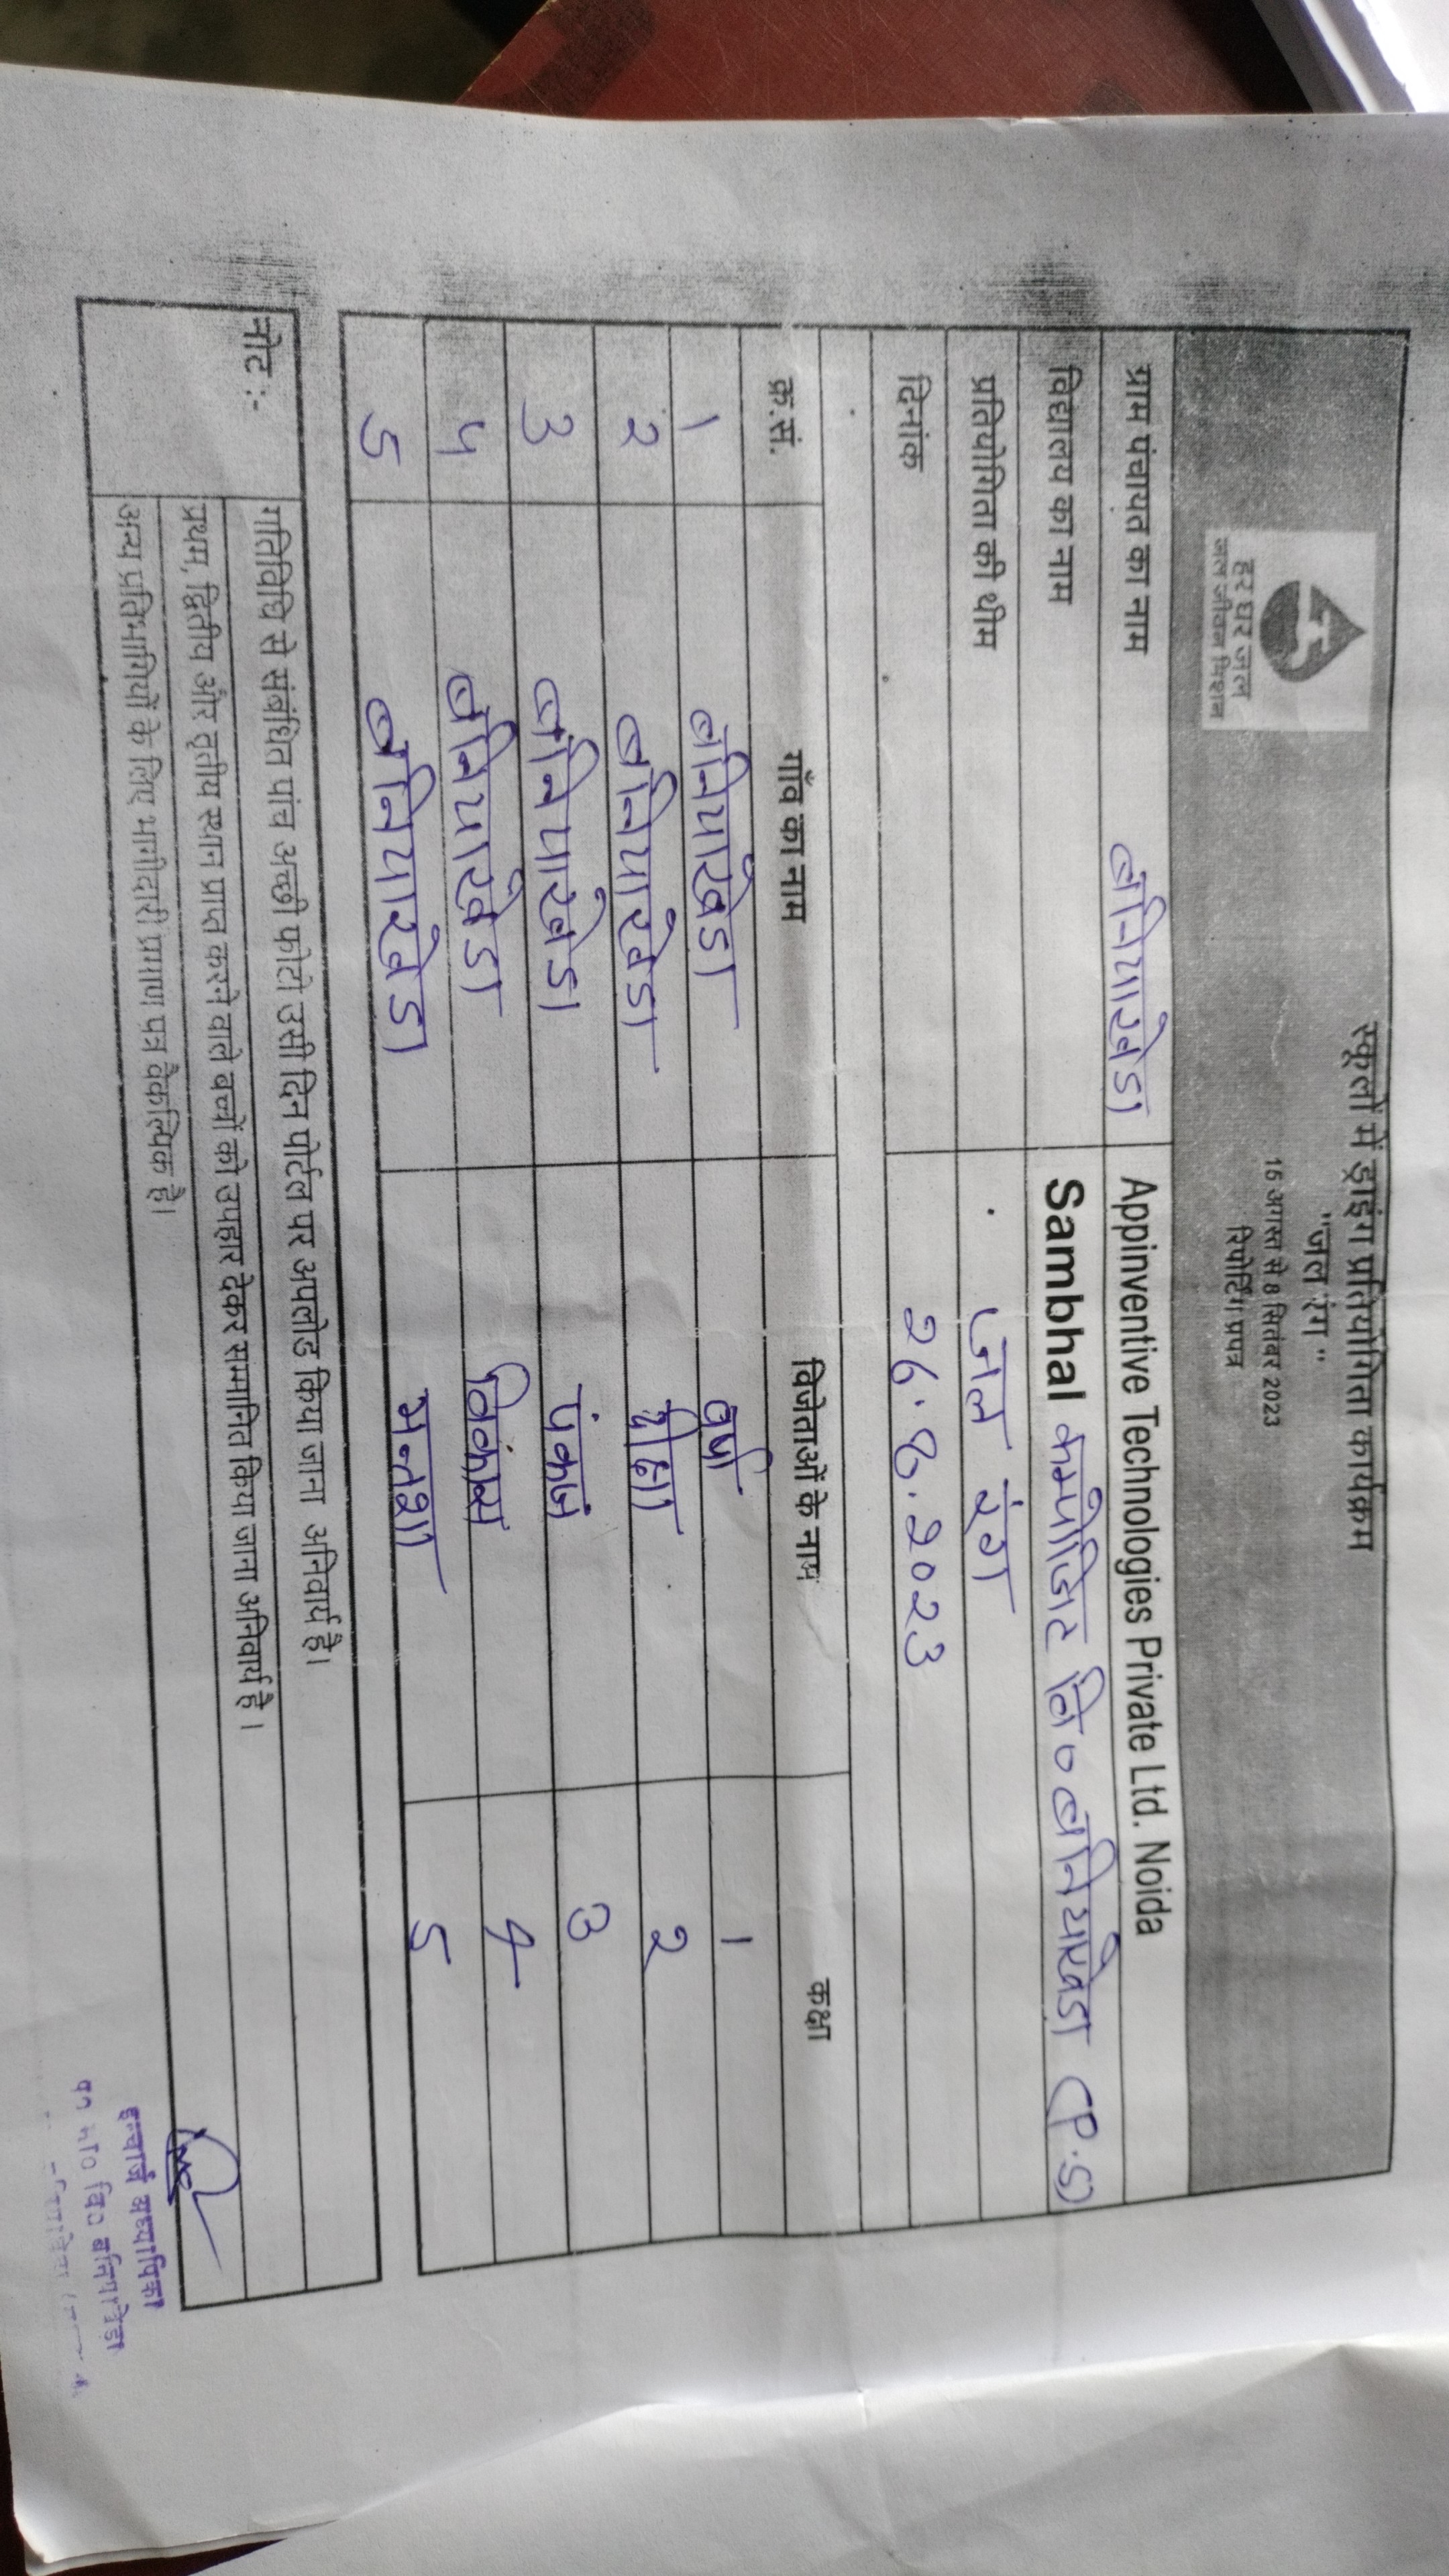 स्कूलों में ड्राइंग प्रतियोगिता कार्यक्रम
"जल रंग"
15 अगस्त से 8 सितंबर 2023
रिपोर्टिंग प्रपत्र
हर घर जल
जल जीवन मिशन
ग्राम पंचायत का नाम बनियाखेडा Appinventive Technologies Private Ltd. Noida
विद्यालय का नाम Sambhal कम्पोजिट वि० बनियाखेडा (P.S)
प्रतियोगिता की थीम जल रंग
दिनांक 26.8.2023
क्र.सं. गाँव का नाम विजेताओं के नाम कक्षा
1 बनियाखेडा वर्षा 1
2 बनियाखेडा दीक्षा 2
3 बनियाखेडा पंकज 3
4 बनियाखेडा विकास 4
5 बनियाखेडा 5
नोट :- गतिविधि से संबंधित पांच अच्छी फोटो उसी दिन पोर्टल पर अपलोड किया जाना अनिवार्य है।
प्रथम, द्वितीय और तृतीय स्थान प्राप्त करने वाले बच्चों को उपहार देकर सम्मानित किया जाना अनिवार्य है ।
अन्य प्रतिभागियों के लिए भागीदारी प्रमाण पत्र वैकल्पिक है।
इन्चार्ज अध्यापिका
वि० बनियाखेड़ा